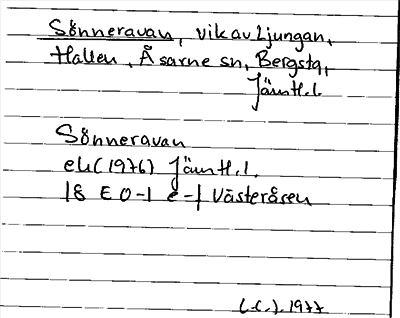 Sönneravan, vik av Ljungan,
Hallen, Åsarne sn, Bergstq,
Jämtl.l.
Sönneravan
ek (1976) Jämtl.l.
18 E 0-1 e-f Västeråsen
1977